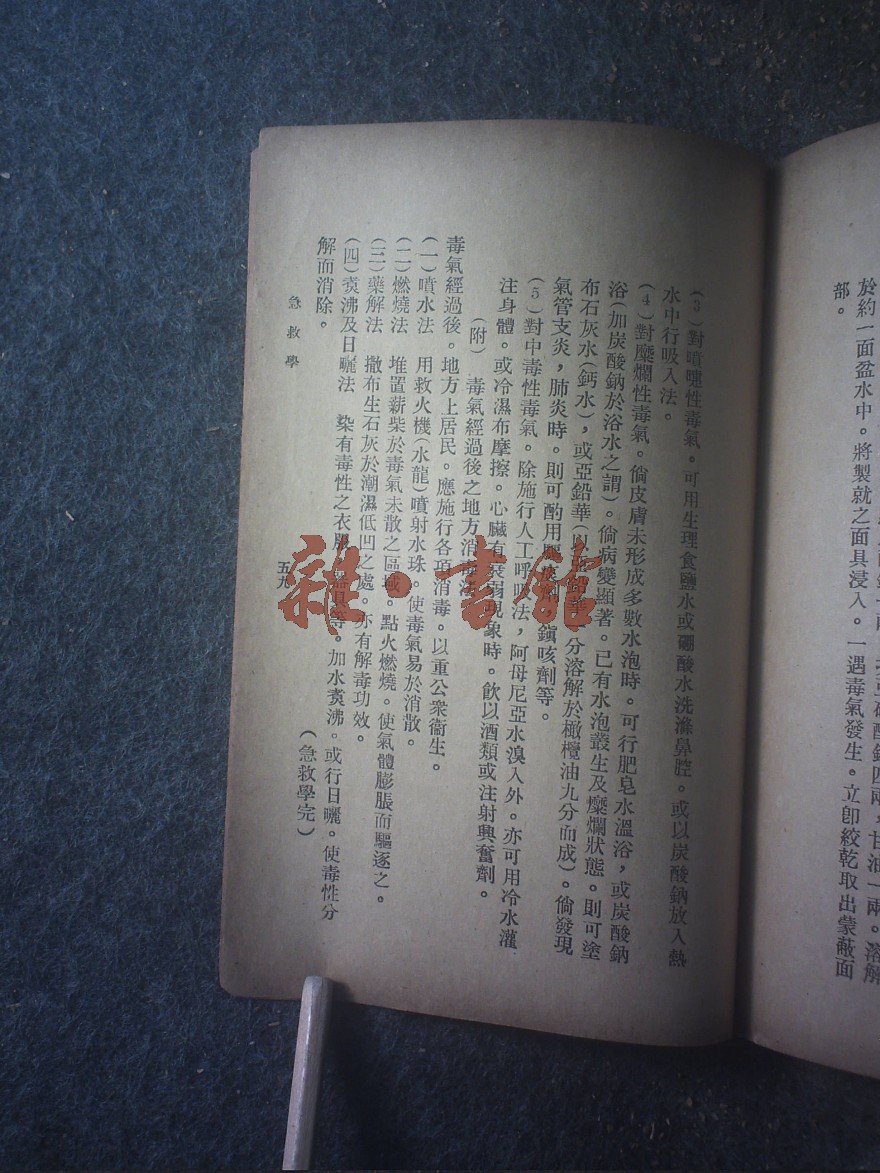 於約一面盆水中。將製就之面具浸入。一遇毒氣發生。立卽絞乾取出蒙蔽面
部。
(3)對噴嚏性毒氣。可用生理食鹽水或硼酸水洗滌鼻腔。或以炭酸鈉放入熱
水中行吸入法。
(4)對糜爛性毒氣。倘皮膚未形成多數水泡時。可行肥皂水溫浴，或炭酸鈉
浴(加炭酸鈉於浴水之謂)。倘病變顯著。已有水泡叢生及糜爛狀態。則可塗
布石灰水(鈣水)，或亞鉛華 分溶解於橄欖油九分而成)。倘發現
氣管支炎，肺炎時。則可酌用 鎮咳劑等。
(5)對中毒性毒氣。除施行人工呼吸法，阿母尼亞水嗅入外。亦可用冷水灌
注身體。或冷濕布摩擦。心臟有衰弱現象時。飲以酒類或注射興奮劑。
(附) 毒氣經過後之地方消毒法
毒氣經過後。地方上居民。應施行各項消毒。以重公衆衞生。
(一)噴水法 用救火機(水龍)噴射水珠。使毒氣易於消散。
(二)燃燒法 堆置薪柴於毒氣未散之區域。點火燃燒。使氣體膨脹而驅逐之。
(三)藥解法 撒布生石灰於潮濕低凹之處。亦有解毒功效。
(四)煑沸及日曬法 染有毒性之衣服 器具等。加水煑沸。或行日曬。使毒性分
解而消除。
(急救學完)
急救學
五九
雜·書館